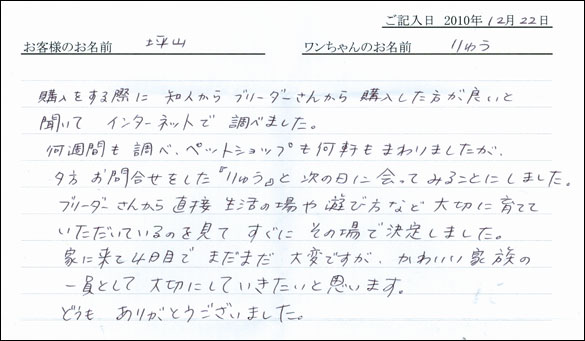 ご記入日 2010年12月22日
お客様のお名前 坪山 ワンちゃんのお名前 りゅう
購入をする際に 知人から ブリーダーさんから 購入した方が良いと
聞いて インターネットで 調べました。
何週間も 調べ、ペットショップも何軒も まわりましたが、
夕方 お問合せをした『りゅう』と 次の日に会ってみることにしました。
ブリーダーさんから 直接 生活の場や 遊び方など 大切に育てて
いただいているのを見て すぐに その場で決定しました。
家に来て 4日目で まだまだ 大変ですが、かわいい家族の
一員として 大切にしていきたいと思います。
どうも ありがとうございました。